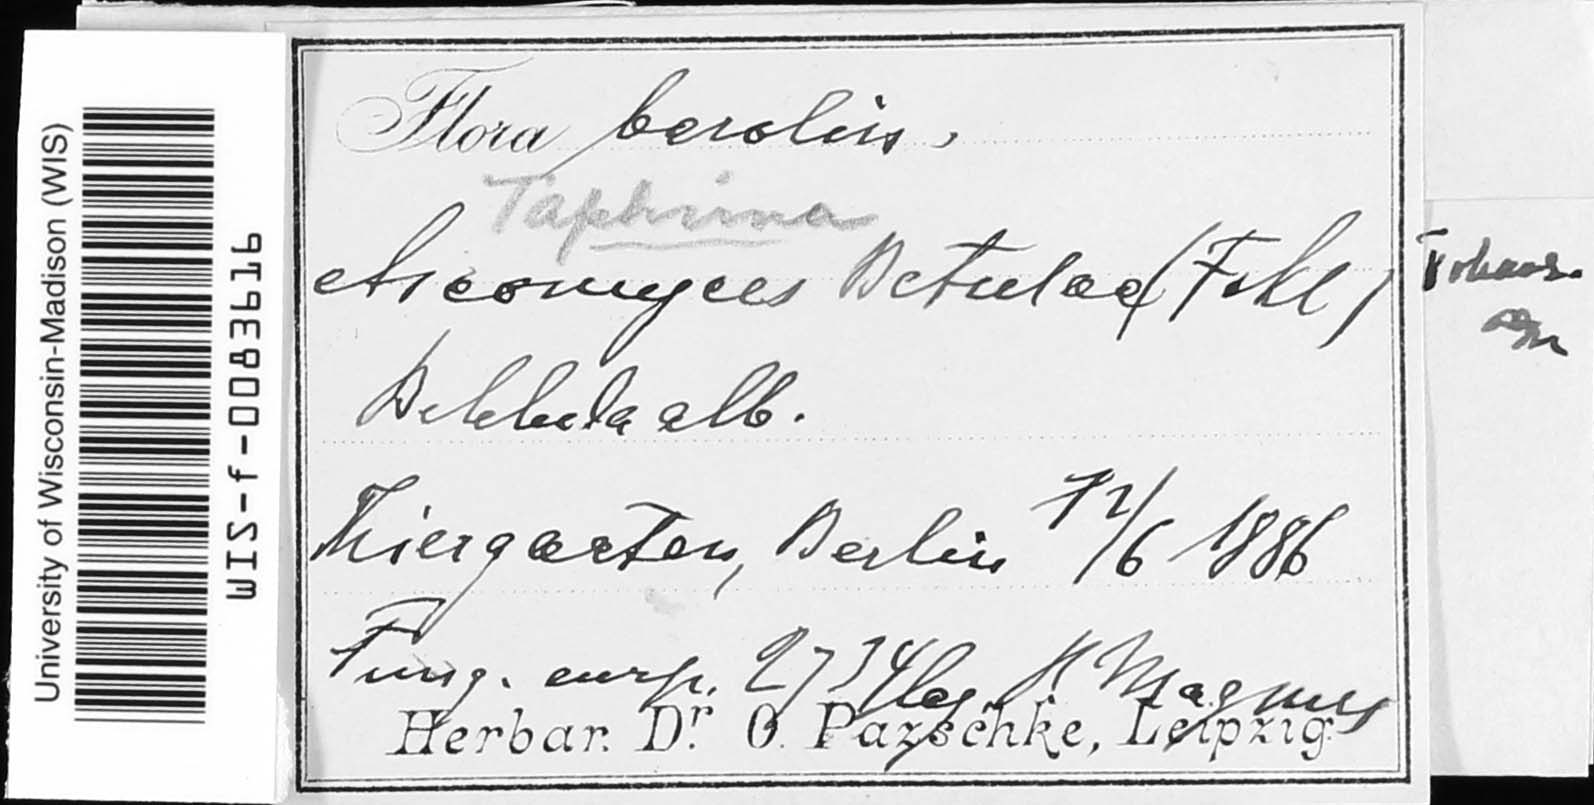 University of Wisconsin-Madison (WIS)
WIS-f-0083616
Flora berolin,
Taphrina
Ascomyces Betulae (Fckl)
Betula alb.
Thiergarten, Berlin 12/6 1886
Fung. europ. 2734 leg. P Magnus
Herbar. Dr. O. Pazschke, Leipzig.
Johans.